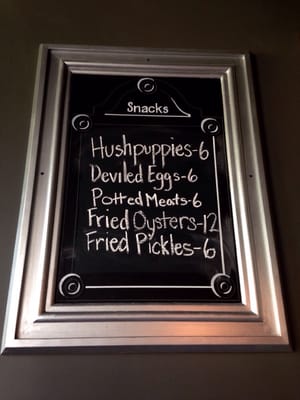 Snacks
Hushpuppies-6
Deviled Eggs-6
Potted Meats-6
Fried Oysters-12
Fried Pickles-6